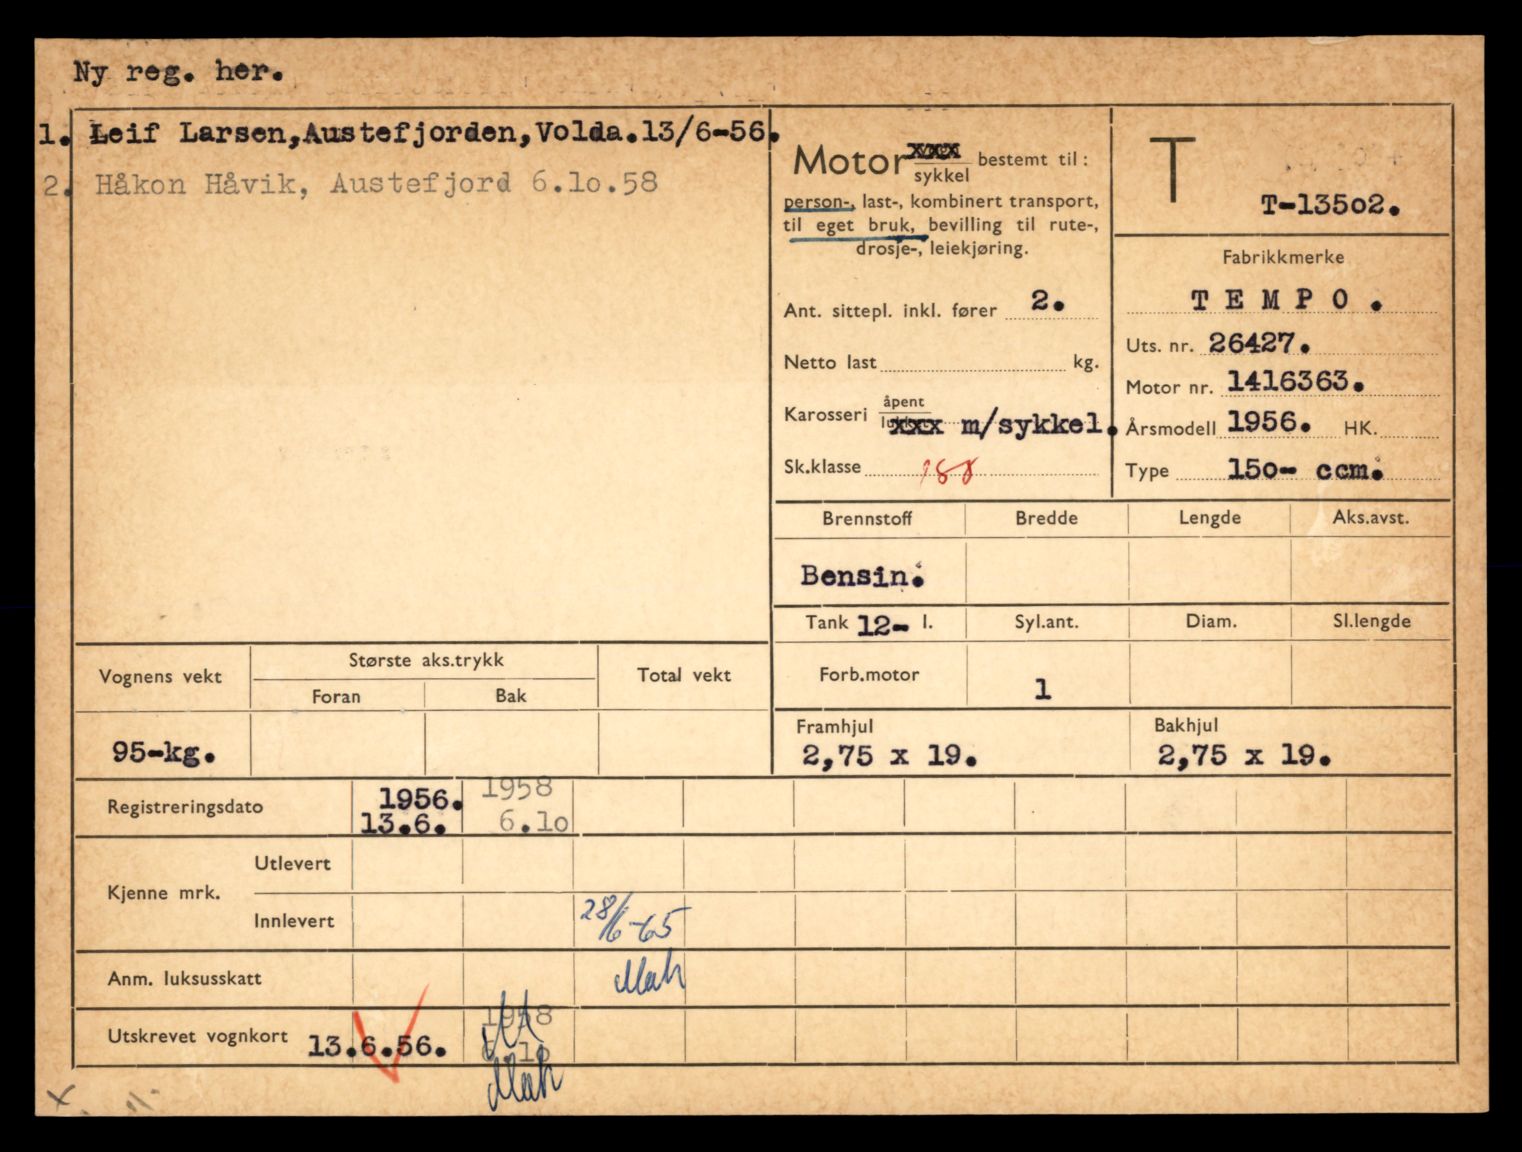 Ny reg. her.
1. Leif Larsen,Austefjorden,Volda.13/6-56.
2. Håkon Håvik, Austefjord 6.10.58
Motor xxx sykkel bestemt til :
person-, last-, kombinert transport,
til eget bruk, bevilling til rute-,
drosje-, leiekjøring.
Ant. sittepl. inkl. fører 2.
Netto last kg.
Karosseri åpent xxx m/sykkel.
Sk.klasse
T
T-13502.
Fabrikkmerke
TEMPO.
Uts. nr. 26427.
Motor nr. 1416363.
Årsmodell 1956. HK.
Type 150- ccm.
Brennstoff Bredde Lengde Aks.avst.
Bensin.
Tank 12- l. Syl.ant. Diam. Sl.lengde
Forb.motor 1
Framhjul Bakhjul
2,75 x 19. 2,75 x 19.
Vognens vekt Største aks.trykk Total vekt
Foran Bak
95-kg.
Registreringsdato 1956. 1958
13.6. 6.10
Kjenne mrk. Utlevert
Innlevert 28/6-65
Anm. luksusskatt
Utskrevet vognkort 13.6.56. 1958
6.10